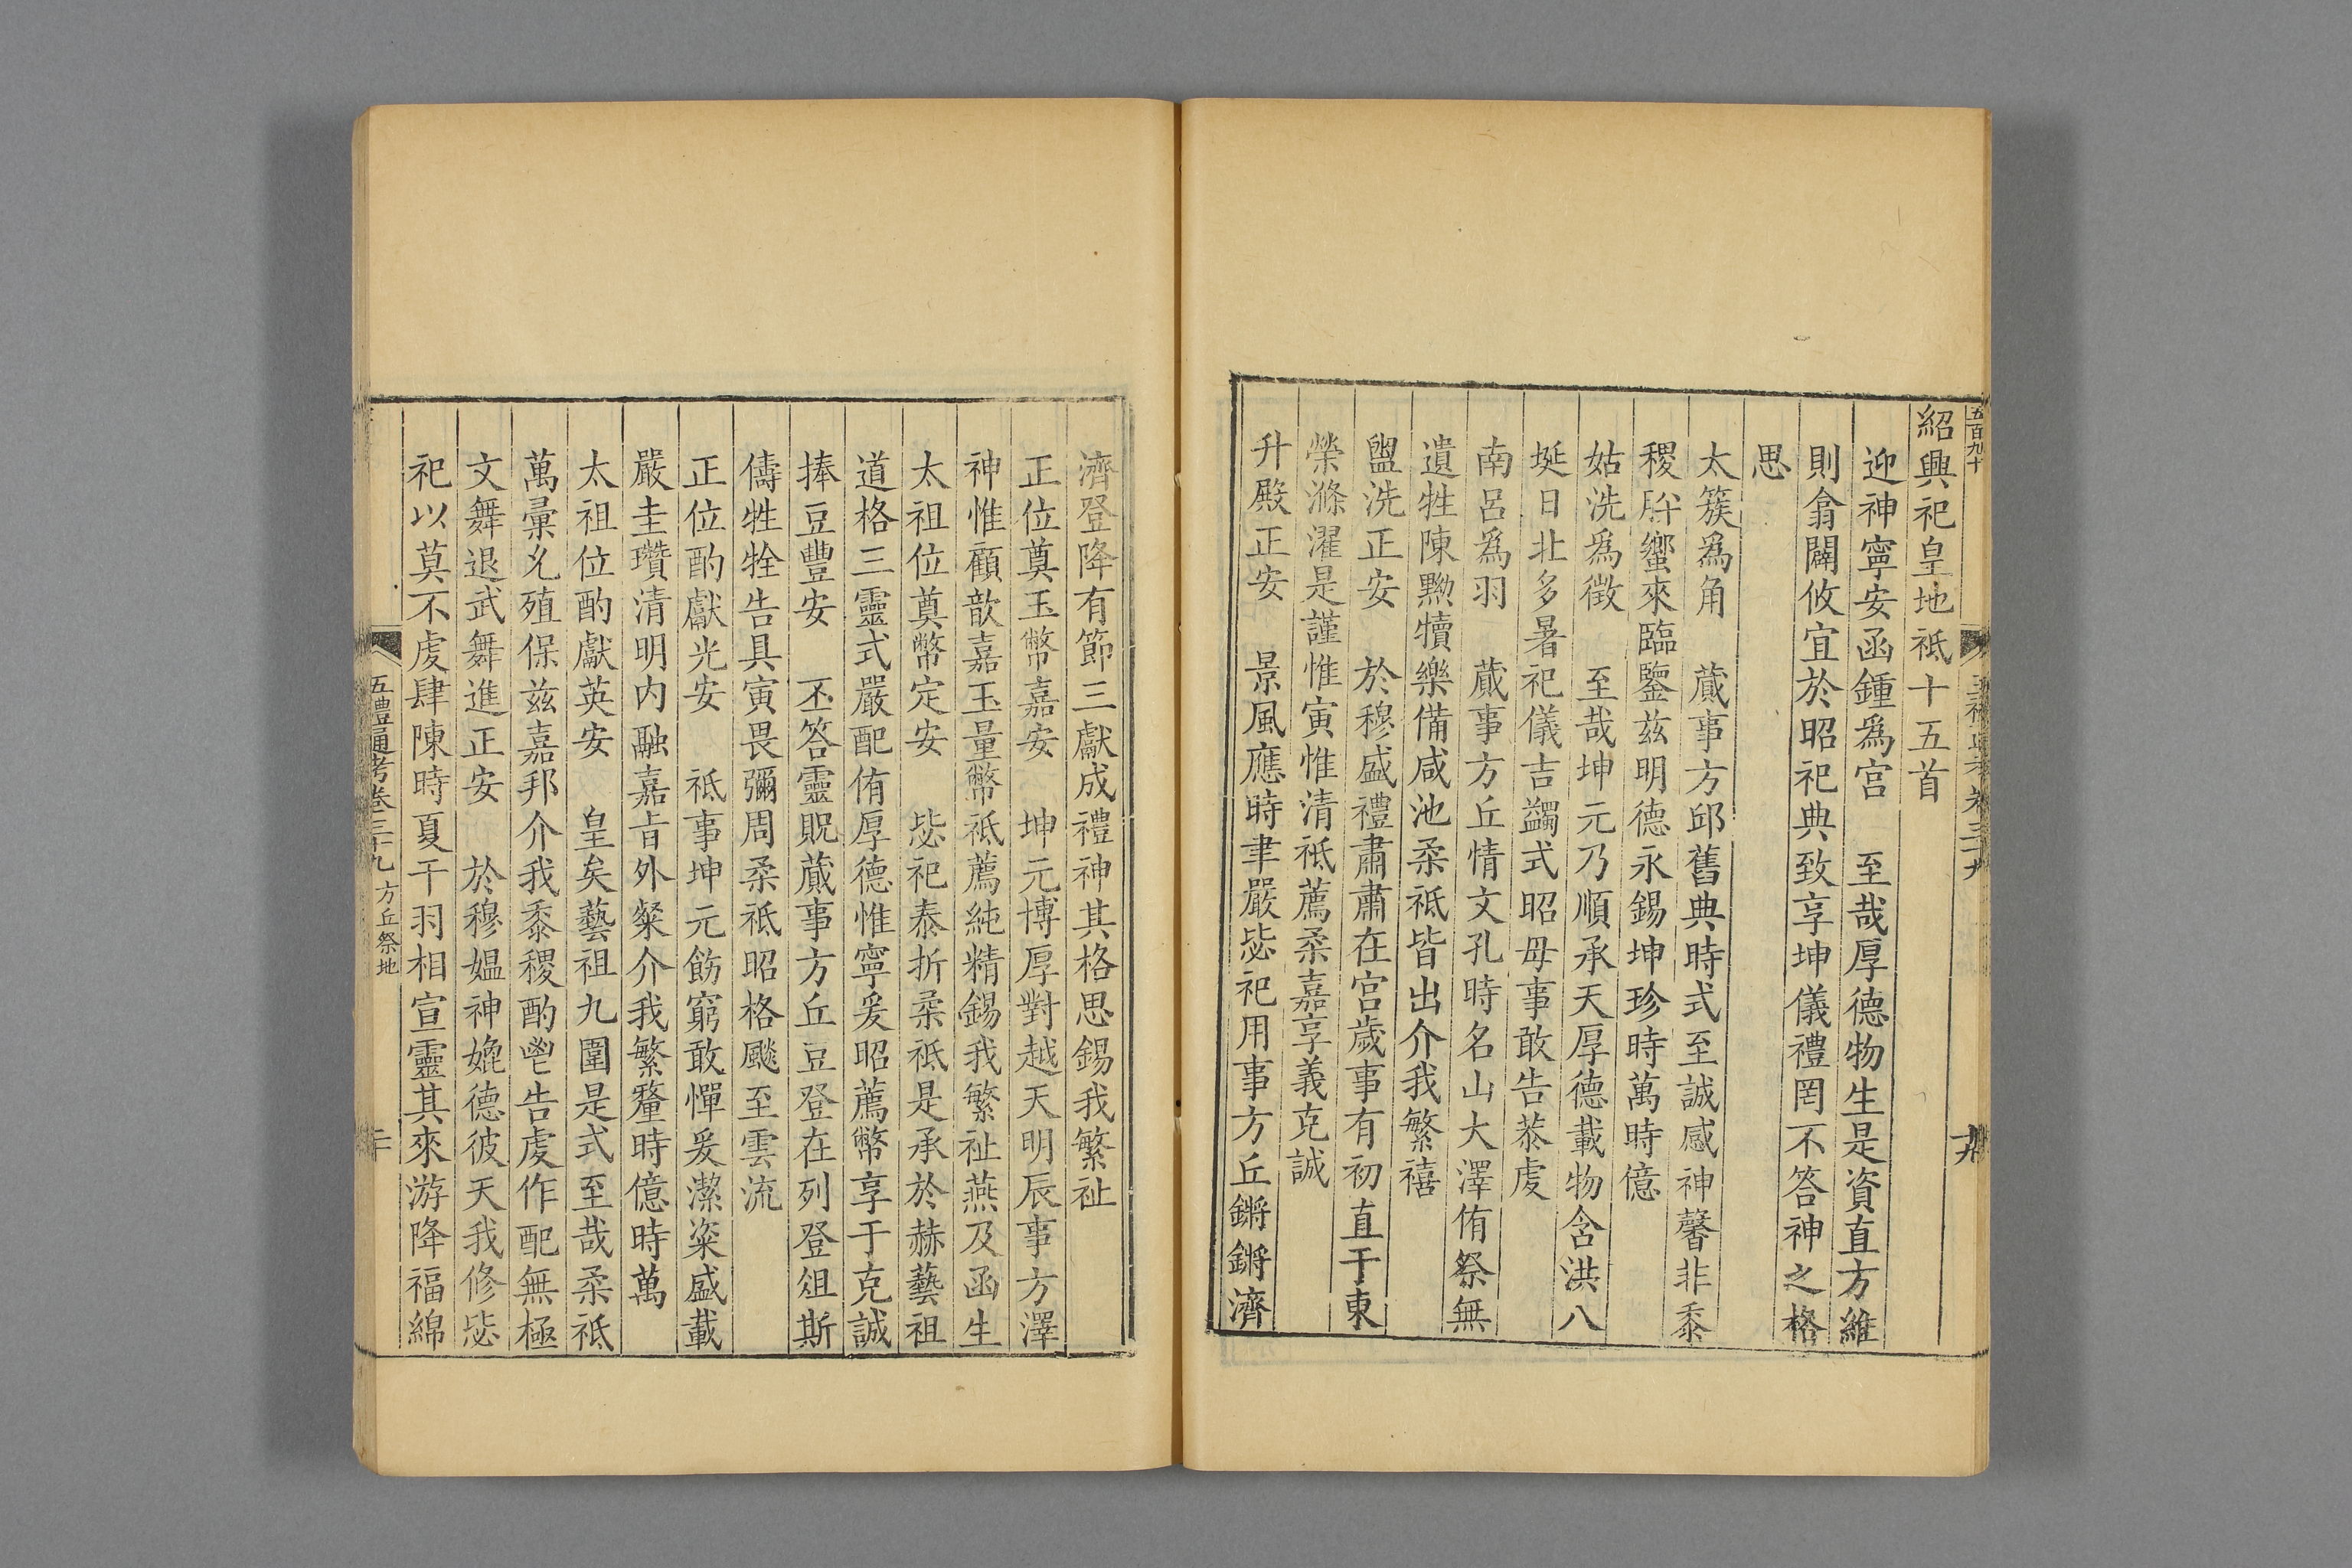 五百九十
紹興祀皇地祇十五首
迎神寧安函鍾爲宮　至哉厚德物生是資直方維
則翕闢攸宜於昭祀典致享坤儀禮罔不答神之格
思
太簇爲角　蕆事方邱舊典時式至誠感神馨非黍
稷肸蠁來臨鑒兹明德永錫坤珍時萬時億
姑洗爲徵　至哉坤元乃順承天厚德載物含洪八
埏日北多暑祀儀吉蠲式昭母事敢告恭虔
南呂爲羽　蕆事方丘情文孔時名山大澤侑祭無
遺牲陳黝犢樂備咸池柔祇皆出介我繁禧
盥洗正安　於穆盛禮肅肅在宮歲事有初直于東
榮滌濯是謹惟寅惟清祇薦柔嘉享義克誠
升殿正安　景風應時聿嚴毖祀用事方丘鏘鏘濟
濟登降有節三獻成禮神其格思錫我繁祉
正位奠玉幣嘉安　坤元博厚對越天明辰事方澤
神惟顧歆嘉玉量幣祇薦純精錫我繁祉燕及函生
太祖位奠幣定安　毖祀泰折柔祇是承於赫藝祖
道格三靈式嚴配侑厚德惟寧爰昭薦幣享于克誠
捧豆豐安　丕答靈貺蕆事方丘豆登在列登俎斯
儔牲牷告具寅畏彌周柔祇昭格飈至雲流
正位酌獻光安　祇事坤元飭窮敢憚爰潔粢盛載
嚴圭瓚清明内融嘉旨外粲介我繁釐時億時萬
太祖位酌獻英安　皇矣藝祖九圍是式至哉柔祇
萬彙允殖保兹嘉邦介我黍稷酌鬯告虔作配無極
文舞退武舞進正安　於穆媪神媲德彼天我修毖
祀以莫不虔肆陳時夏干羽相宣靈其來游降福綿
五禮通考卷三十九　方丘祭地